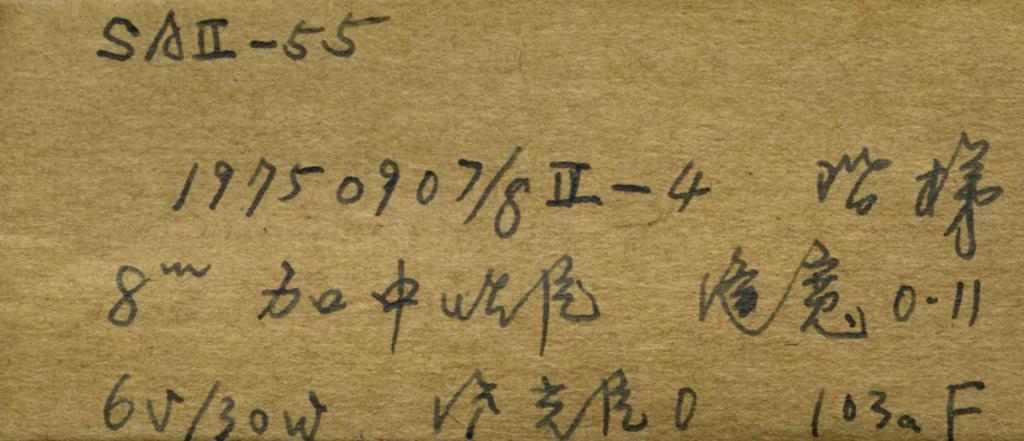 SAII-55
19750907/8II-4 阶梯
8m 加中性屏 缝宽 0.11
6V/30W 光屏 0 103aF